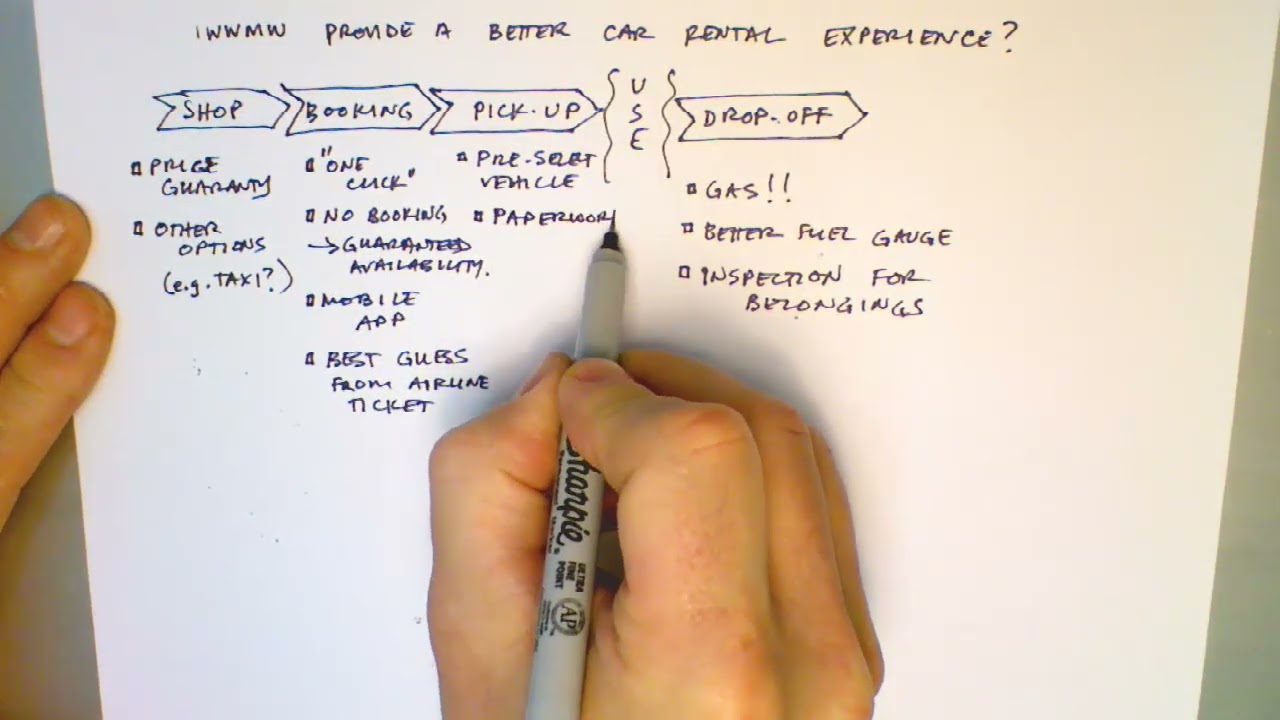 IWWMW PROVIDE A BETTER CAR RENTAL EXPERIENCE?
SHOP
BOOKING
PICK-UP
USE
DROP-OFF
PRICE
GUARANTY
OTHER
OPTIONS
(e.g. TAXI?)
"ONE
CLICK"
NO BOOKING
→ GUARANTEED
AVAILABILITY.
MOBILE
APP
BEST GUESS
FROM AIRLINE
TICKET
PRE-SELET
VEHICLE
PAPERWOR
GAS!!
BETTER FUEL GAUGE
INSPECTION FOR
BELONGINGS
Sharpie
ULTRA
FINE
POINT
AP